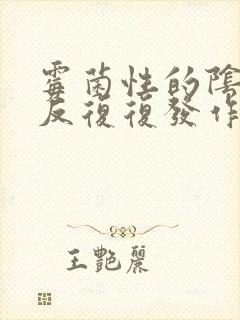 霉菌性的陰
反復復發作
王艷麗